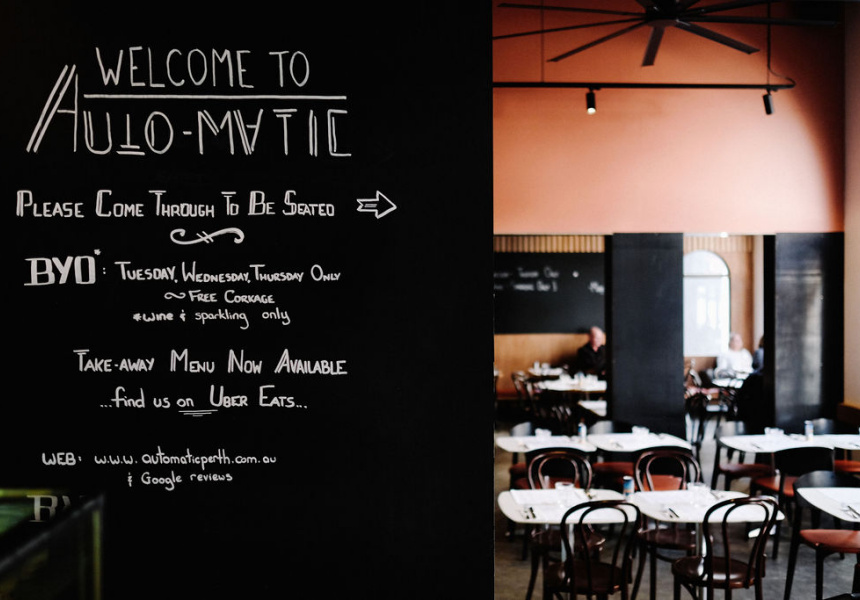 WELCOME TO
AUTO-MATIC
PLEASE COME THROUGH TO BE SEATED
BYO*: TUESDAY, WEDNESDAY, THURSDAY ONLY
~ FREE CORKAGE
*wine & sparkling only
TAKE-AWAY MENU NOW AVAILABLE
...find us on UBER EATS...
WEB: www.automaticperth.com.au
& Google reviews